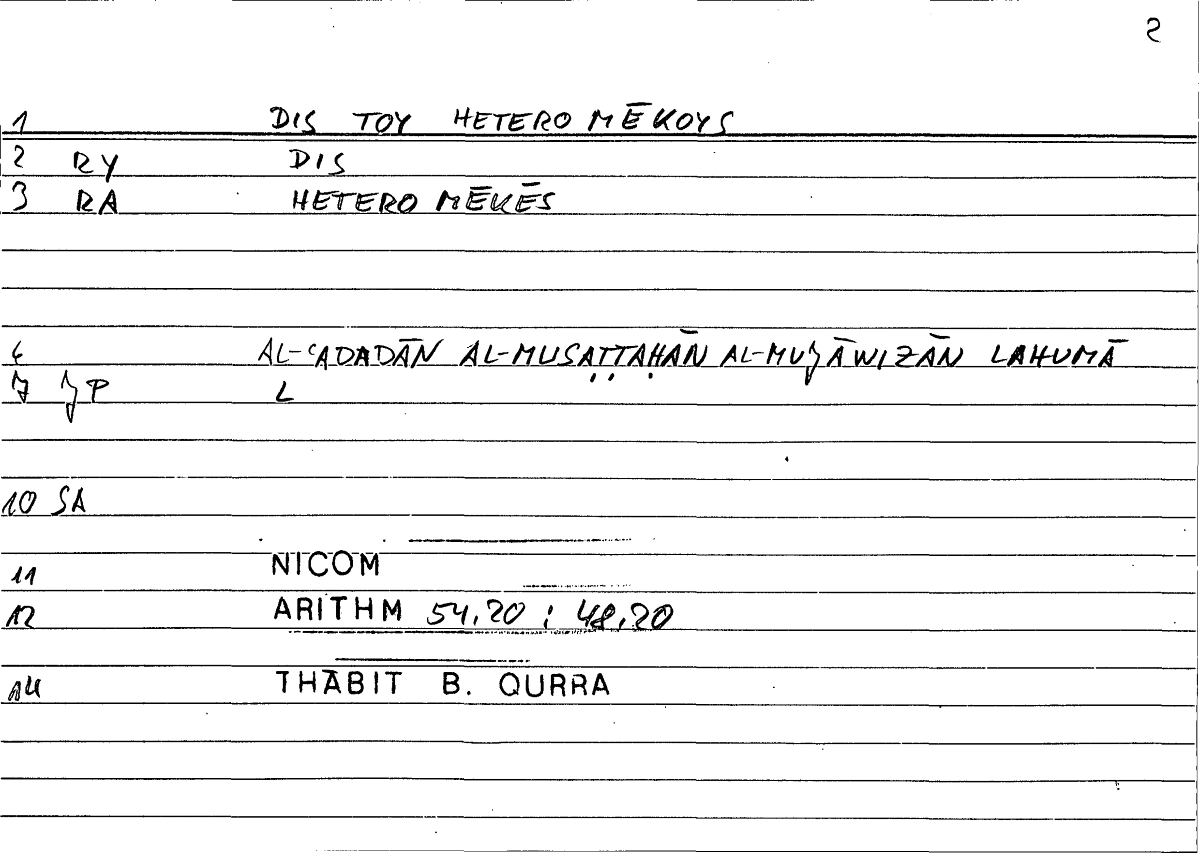 2
1 DIS TOY HETERO MĒKOYS
2 RY DIS
3 RA HETERO MĒKĒS
6 AL-ʿADADĀN AL-MUSAṬṬAḤĀN AL-MUJĀWIZĀN LAHUMĀ
7 JP L
10 SA
11 NICOM
12 ARITHM 54,20 ; 48,20
14 THĀBIT B. QURRA